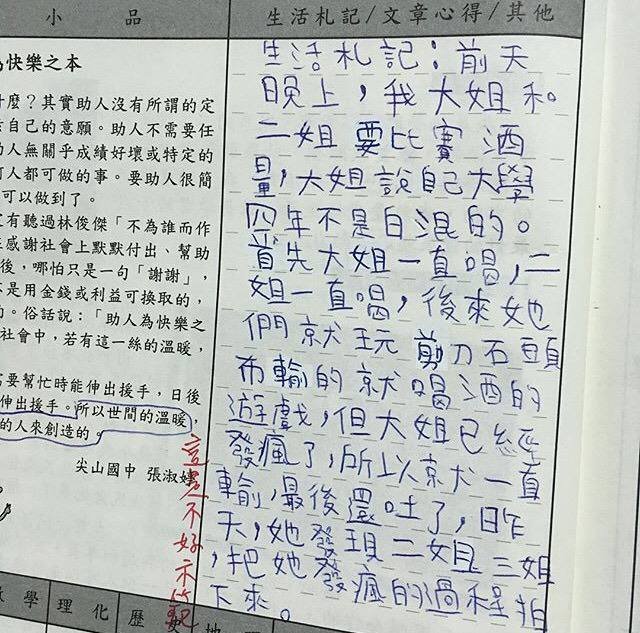 小品
生活札記/文章心得/其他
為快樂之本
什麼？其實助人沒有所謂的定
自己的意願。助人不需要任
人無關乎成績好壞或特定的
人都可做的事。要助人很簡
可以做到了。
有聽過林俊傑「不為誰而作
感謝社會上默默付出、幫助
後，哪怕只是一句「謝謝」，
是用金錢或利益可換取的，
。俗話說：「助人為快樂之
社會中，若有這一絲的溫暖，
需要幫忙時能伸出援手，日後
伸出援手。所以世間的溫暖，
的人來創造的。
尖山國中 張淑
生活札記：前天
晚上，我大姐和
二姐要比賽酒
量，大姐說自己大學
四年不是白混的。
首先大姐一直喝，二
姐一直喝，後來她
們就玩剪刀石頭
布輸的就喝酒的
遊戲，但大姐已經
發瘋了，所以就一直
輸，最後還吐了，昨
天，她發現二姐三姐
，把她發瘋的過程拍
下來。
這是不好示範
學 理化 歷 地